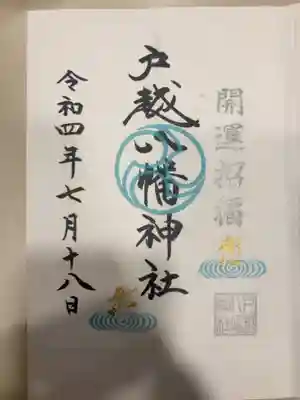 開運招福
戸越八幡神社
令和四年七月十八日